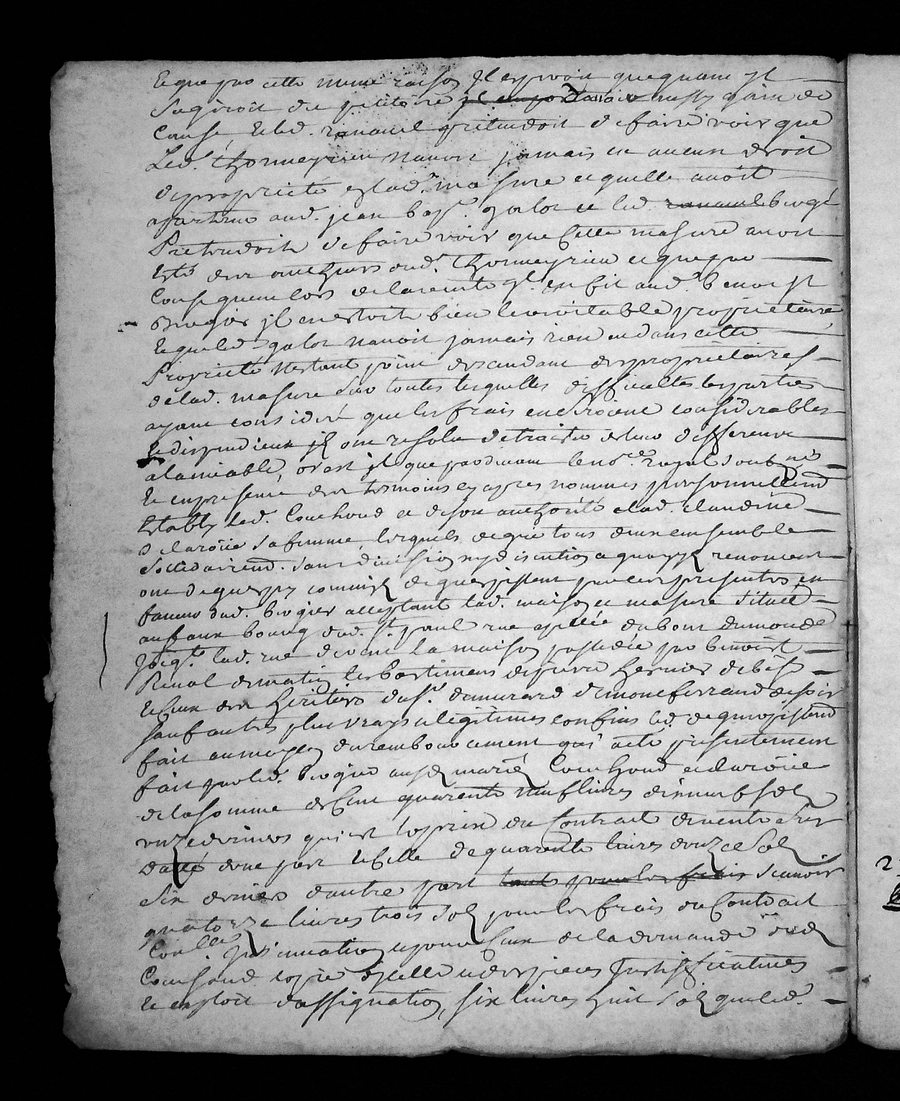 Et que par cette meme raison Il esproit que quant Il
Sagiroit du petitoire il en pordanoir
Cause Et led. pretendoit de faire voir que
Led. Thonneyrieu navoit jamais eu aucun droit
de proprieté en lad. masure et quelle avoit
apartenu aud. jean bapt. galot et led. ranaud brogé
Pretendoit de faire voir que Celle masure avoit
Esté des aud. Thonneyrieu et que par
Consequent lors de la vente quil en fit aud. benoist
Brogier jl en estoit bien le veritable proprietaire
Et que led. galot navoit jamais rien eu dans cette
Proprieté Nestant point descendant des proprietaires
de lad. masure Sur toutes lesquelles difficultes les parties
ayant consideré que les frais en seroient considerables
Et dispendieux jl ont resolu de traiter de leur difference
alamiable, or est jl que pardevant le no.re royal Soubz.né
Et en presence des tesmoins cy apres nommés personnellement
Establys led. Couchoud et de son authorité lad. Claudine
delaroüe sa femme lesquels de gré tous deux ensemble
Solidairem. sans division ny discution a quoy jls renoncent
ont deguerpy comme jls deguerpissent par ces presentes en
faveur dud. brogier acceptant lad. maison et masure Situeé
au faux bourg dud. St. paul rue apellée du bout du monde
Joig.t lad. rue de vent la maison possedée par benoist
Renal de matin les bastimens de pierre hernier de bise
Et Ceux des heritiers du Sr. demurard de monteferrand de soir
sauf autres plus vrays et legitimes confins led. deguerpissement
fait au moyen du remboursement qui a eté presentement
fait par led. brogier ausd. mariés Couchoud et delaroüe
de la somme de Cent quarente neuf livres dixneuf sols
onze deniers qui est le prix du Contrat de vente
datté d'une part et Celle de quarente livres douze Sols
Six deniers d'autre part tant pour les frais Scavoir
quatorze livres trois Sols pour les frais du Contract
Con.lles Jnsinuation et pour Ceux de la demande dud.
Couchoud copie dycelle et des pieces Justifficatives
Et exploit d'assignation, six livres huit Sols que led.